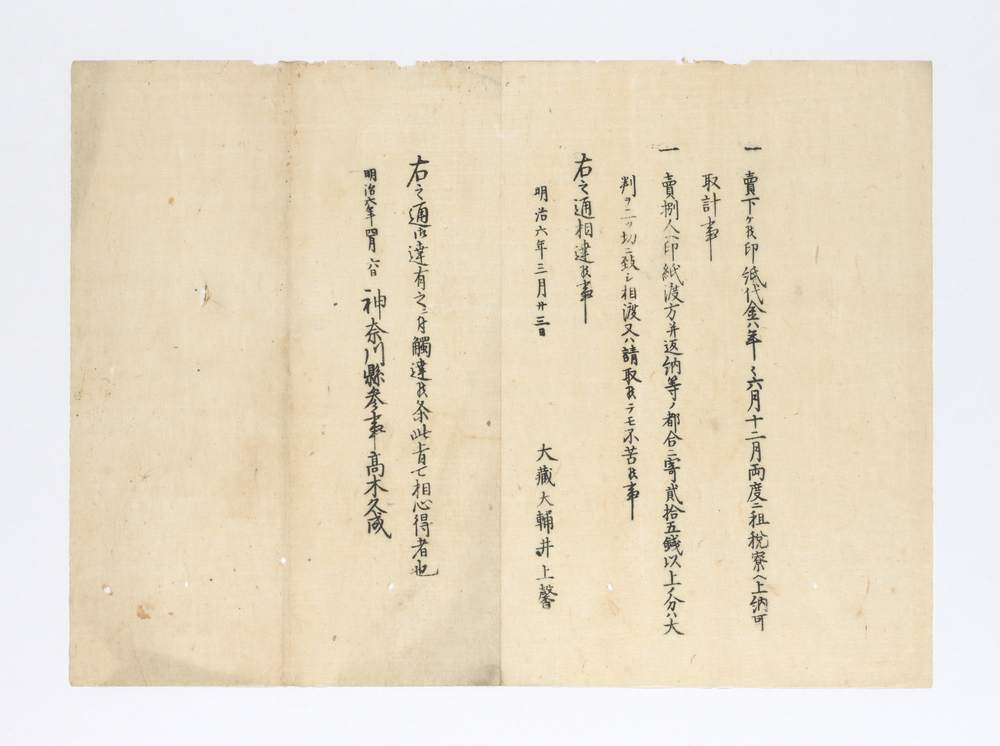 一 賣下ケ候印紙代金ハ年々六月十二月両度ニ租税寮ヘ上納可
取計事
一 賣捌人ヘ印紙渡方并返納等ノ都合ニ寄貳拾五錢以上ノ分ハ大
判ヲ二ツ切ニ致シ相渡又ハ請取候テモ不苦候事
右之通相達候事
明治六年三月廿三日
大藏大輔井上馨
右之通御達有之ニ付觸達候条此旨可相心得者也
明治六年四月六日 神奈川縣参事高木久成